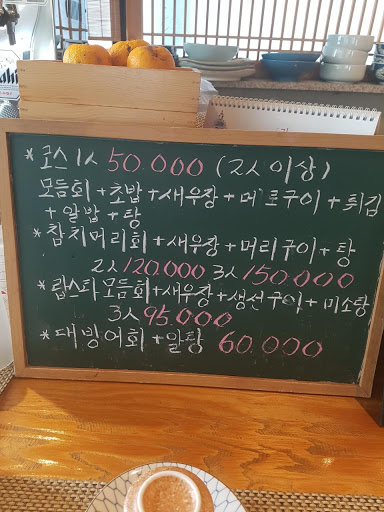 * 코스 1人 50.000 (2人 이상)
모듬회 + 초밥 + 새우장 + 메로구이 + 튀김
+ 알밥 + 탕
* 참치머리회 + 새우장 + 머리구이 + 탕
2人 120.000 3人 150.000
* 랍스타모듬회 + 새우장 + 생선구이 + 미소탕
3人 95.000
* 대방어회 + 알탕 60.000